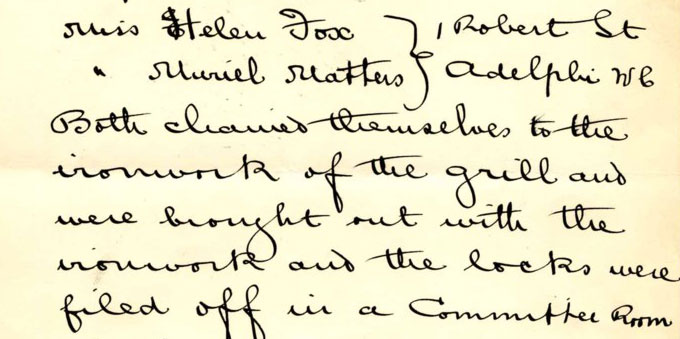 Miss Helen Fox } 1 Robert St
" Muriel Matters } Adelphi WC
Both chained themselves to the
ironwork of the grill and
were brought out with the
ironwork and the locks were
filed off in a Committee Room